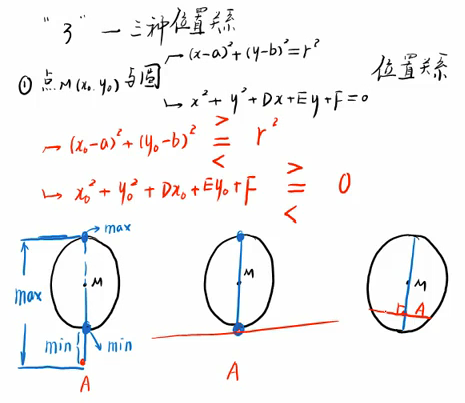 "3" — 三种位置关系
① 点M(x₀,y₀)与圆 → (x-a)²+(y-b)²=r² 位置关系
↘ x²+y²+Dx+Ey+F=0
→ (x₀-a)²+(y₀-b)² > = < r²
→ x₀²+y₀²+Dx₀+Ey₀+F > = < 0
max
M M M
max
A
min min
A A